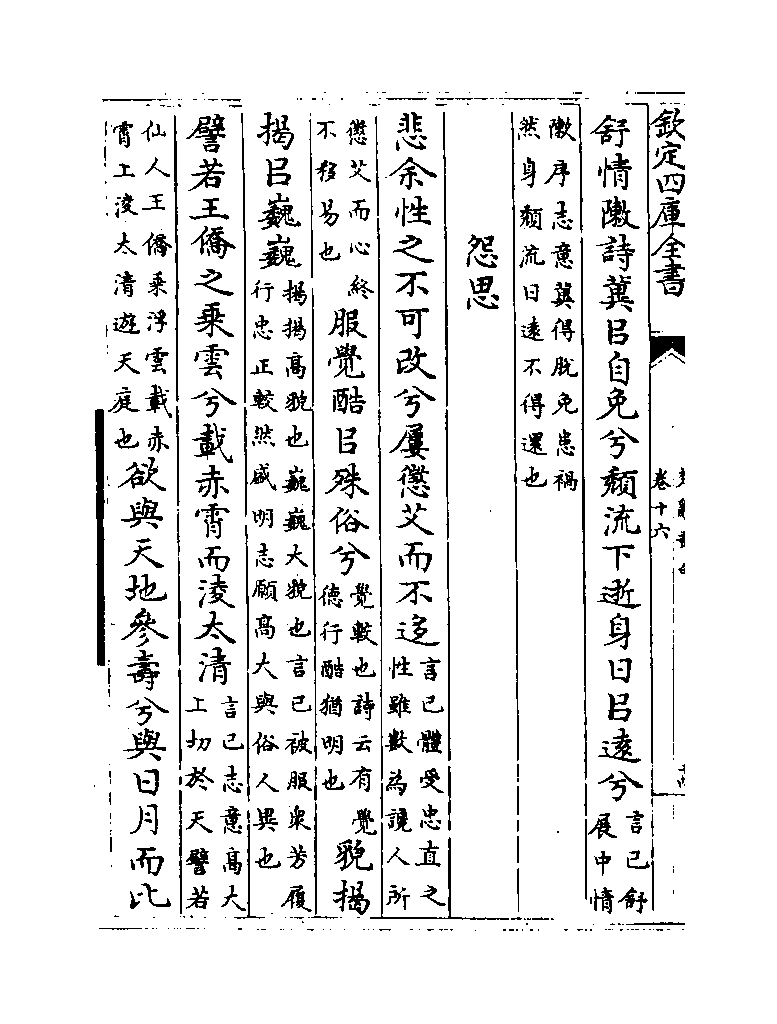 欽定四庫全書
卷十六
舒情敶詩冀㠯自免兮頽流下逝身日㠯遠兮言已舒展中情
敶序志意冀得脫免患禍然身頽流日遠不得還也
怨思
悲余性之不可改兮屢懲艾而不迻言已體受忠直之性雖數為讒人所
懲艾而心終不移易也服覺酷㠯殊俗兮覺較也詩云有覺德行酷猶明也貌揭
揭㠯巍巍揭揭高貌也巍巍大貌也言已被服衆芳履行忠正較然盛明志願高大與俗人異也
譬若王僑之乗雲兮載赤霄而淩太清言已志意高大上切於天譬若
仙人王僑乗浮雲載赤霄上淩太清遊天庭也欲與天地參壽兮與日月而比